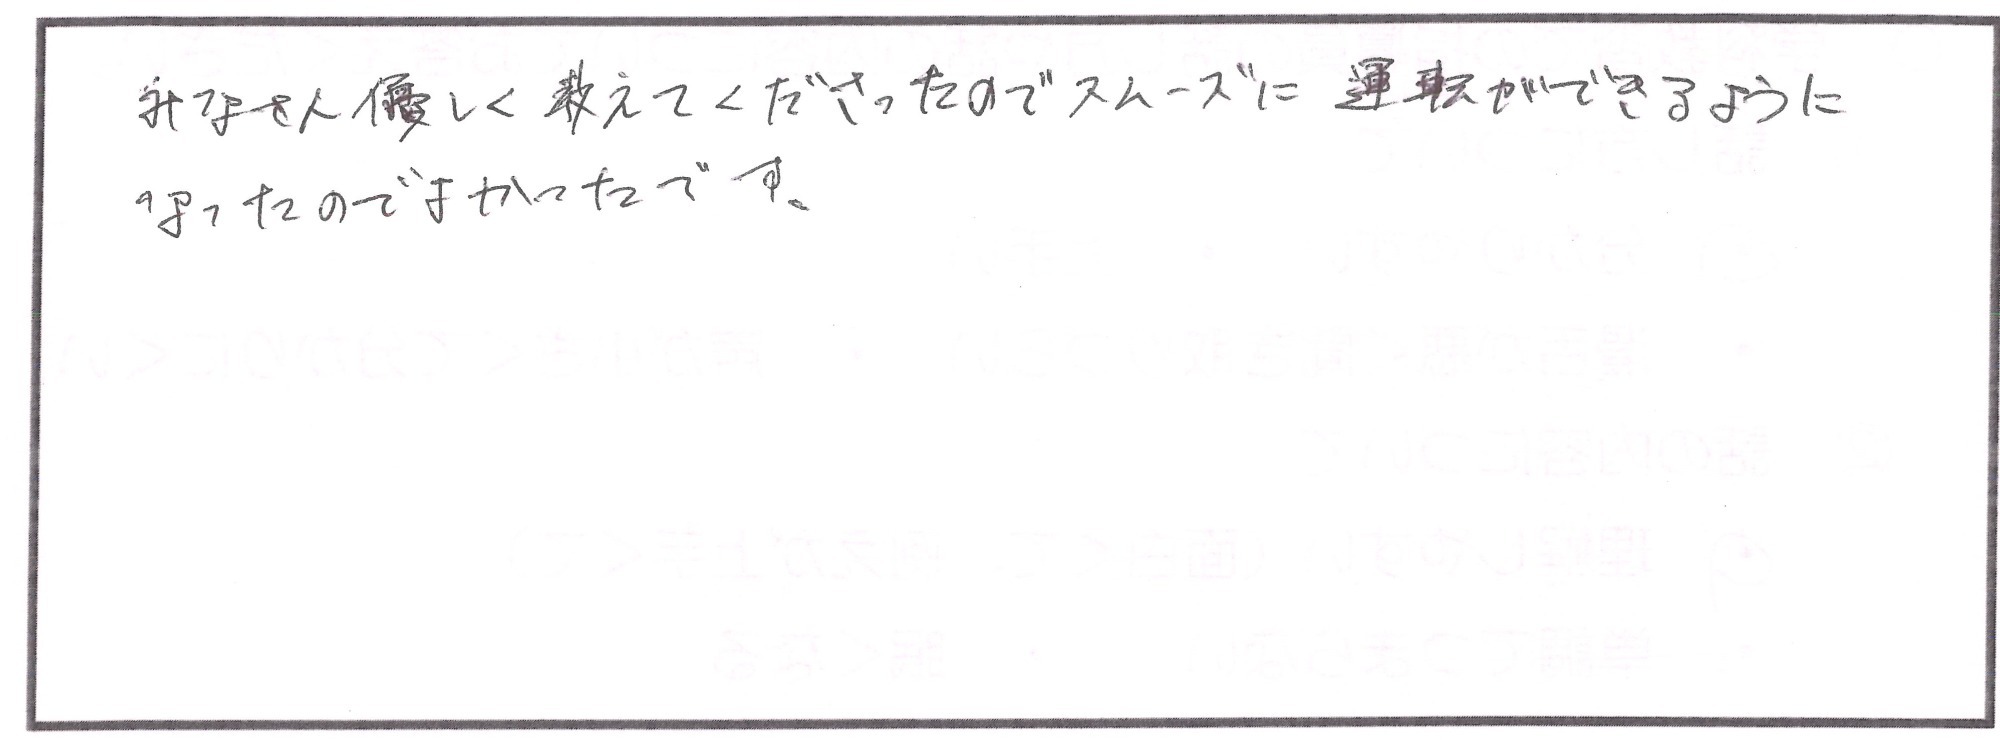 みなさん優しく教えてくださったのでスムーズに運転ができるように
なったのでよかったです。